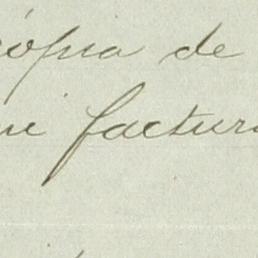 cópia de
factura